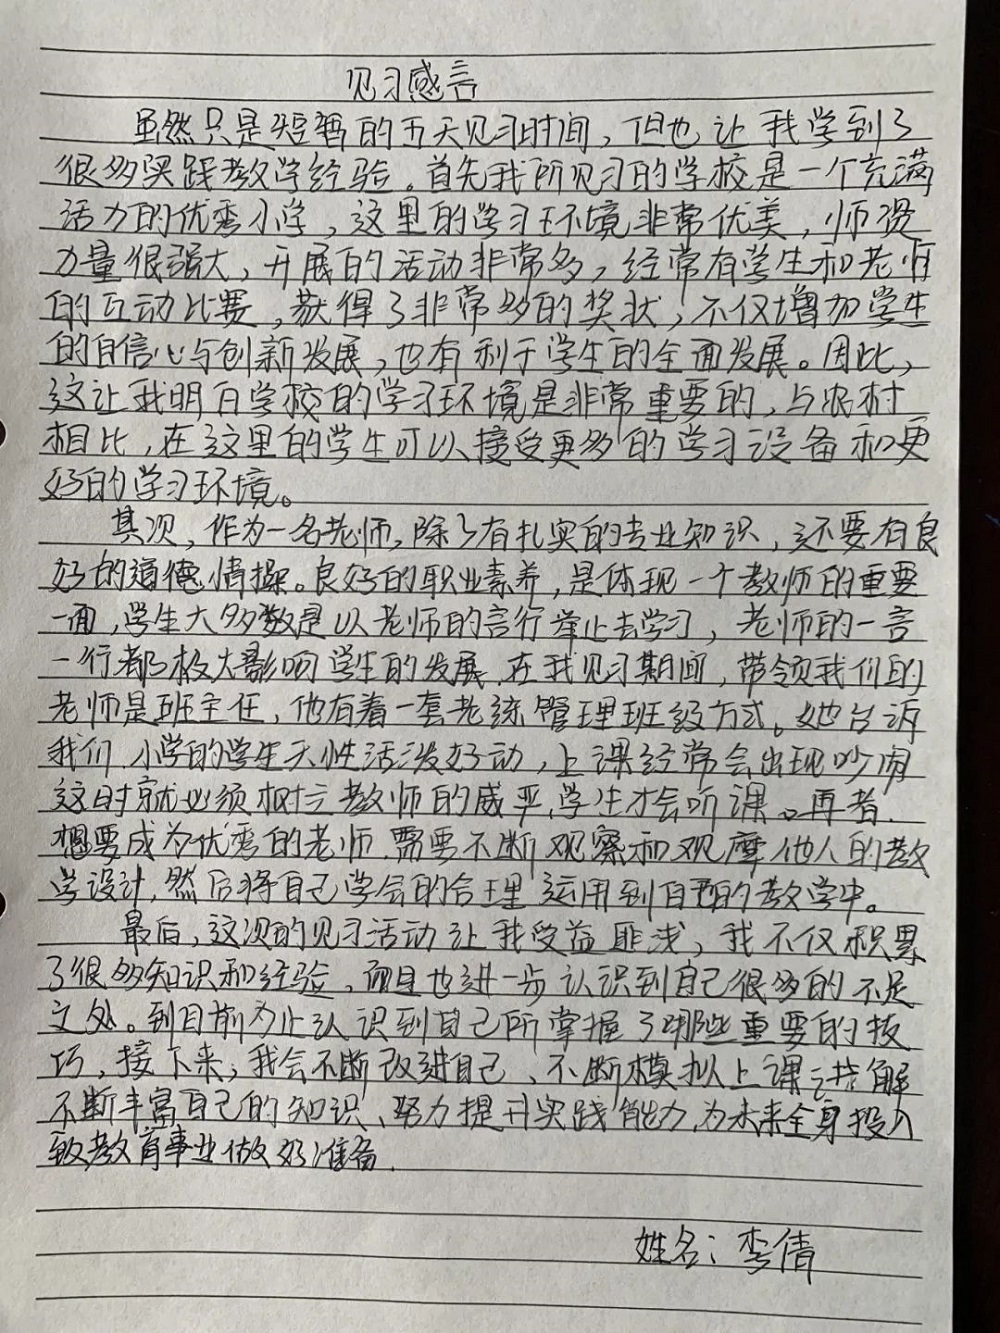 见习感言
虽然只是短暂的五天见习时间，但也让我学到了
很多实践教学经验。首先我所见习的学校是一个充满
活力的优秀小学，这里的学习环境非常优美，师资
力量很强大，开展的活动非常多，经常有学生和老师
的互动比赛，获得了非常多的奖状，不仅增加学生
的自信心与创新发展，也有利于学生的全面发展。因此，
这让我明白学校的学习环境是非常重要的，与农村
相比，在这里的学生可以接受更多的学习设备和更
好的学习环境。
其次，作为一名老师，除了有扎实的专业知识，还要有良
好的道德情操。良好的职业素养，是体现一个教师的重要
一面，学生大多数是以老师的言行举止去学习，老师的一言
一行都极大影响学生的发展。在我见习期间，带领我们的
老师是班主任，他有着一套老练管理班级方式。她告诉
我们，小学的学生天性活泼好动，上课经常会出现吵闹
这时就必须树立教师的威严，学生才会听课。再者，
想要成为优秀的老师，需要不断观察和观摩他人的教
学设计，然后将自己学会的合理运用到自己的教学中。
最后，这次的见习活动让我受益匪浅，我不仅积累
了很多知识和经验，而且也进一步认识到自己很多的不足
之处。到目前为止认识到自己所掌握了哪些重要的技
巧，接下来，我会不断改进自己，不断模拟上课讲解
不断丰富自己的知识、努力提升实践能力，为未来全身投入
到教育事业做好准备.
姓名：李倩